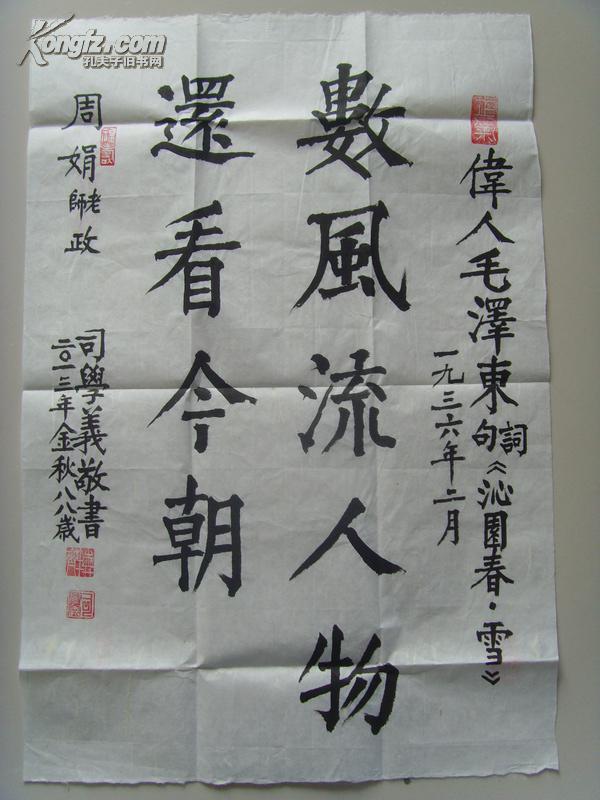 偉人毛澤東詞句《沁園春·雪》
一九三六年二月
數風流人物
還看今朝
周娟老師政
司學義敬書
二〇一三年金秋八八歲
Kongfz.com
孔夫子旧书网